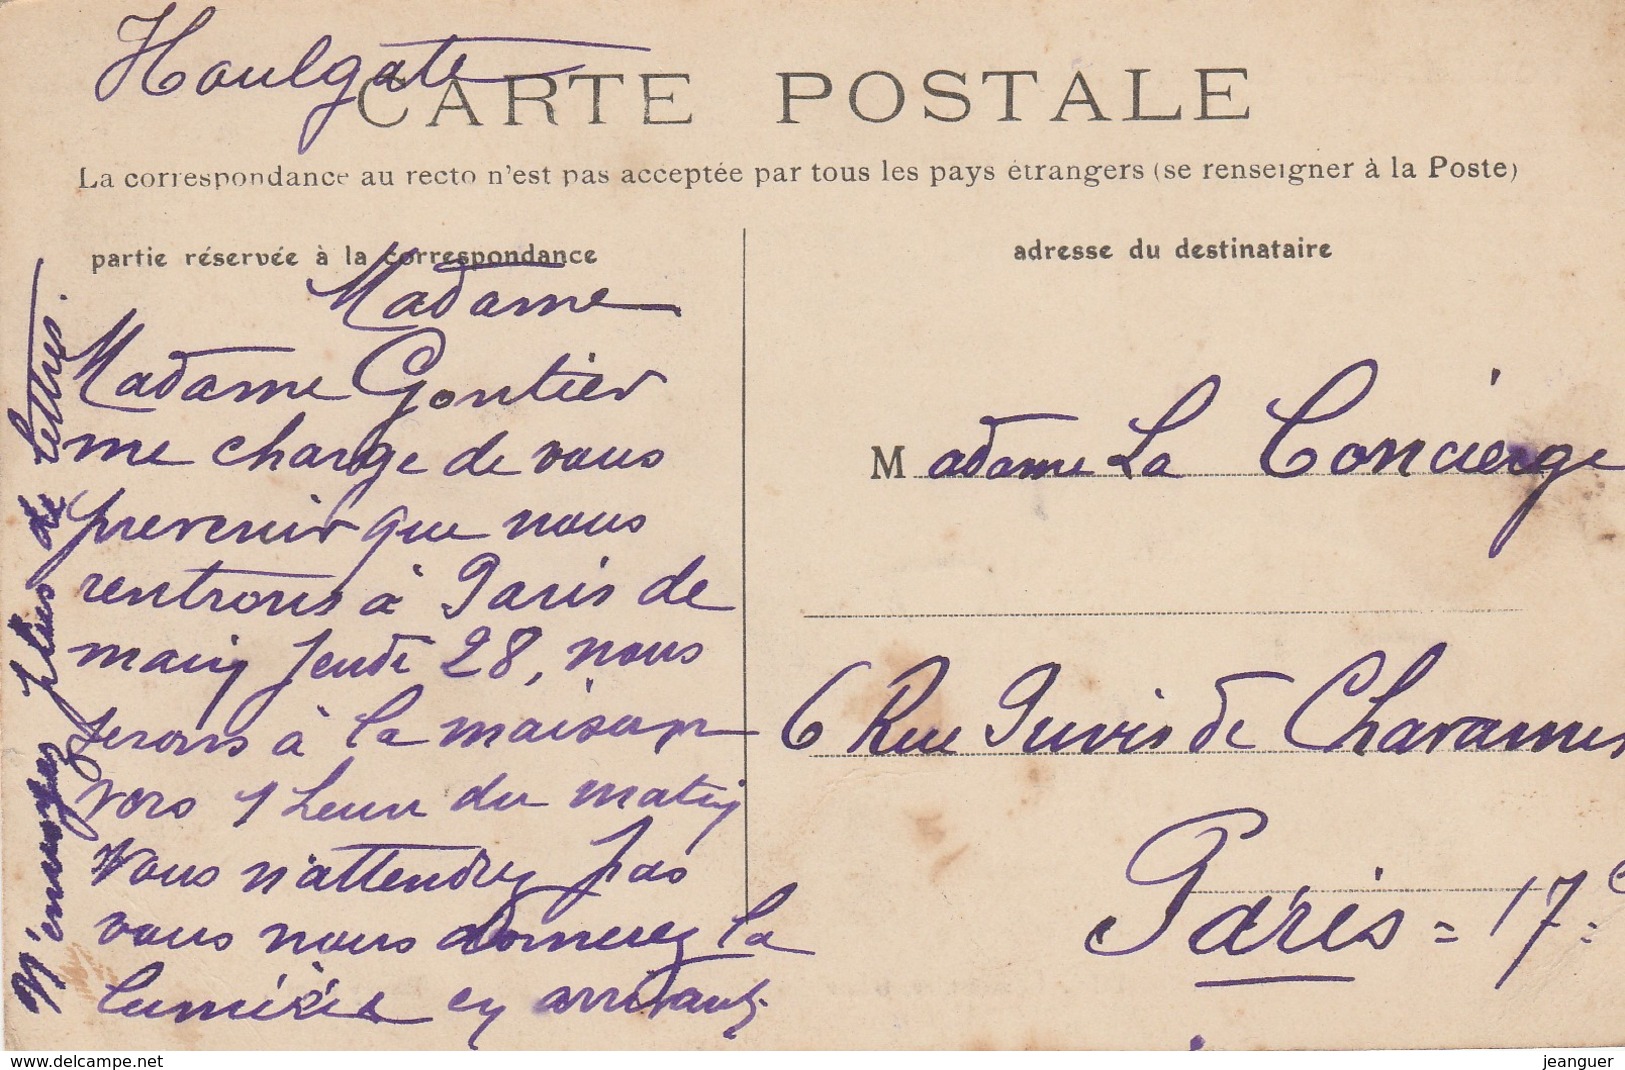 Houlgate
CARTE POSTALE
La correspondance au recto n'est pas acceptée par tous les pays étrangers (se renseigner à la Poste)
partie réservée à la correspondance
Madame
Madame Gontier
me charge de vous
prevenir que nous
rentrons à Paris de
main Jeudi 28, nous
serons à la maison
vers 1 heure du matin
Vous n'attendrez pas
vous nous donnerez la
lumière en arrivant
N'envoyez plus de lettres.
adresse du destinataire
Madame La Concierge
6 Rue Puvis de Chavannes
Paris = 17e
www.delcampe.net
jeanguer